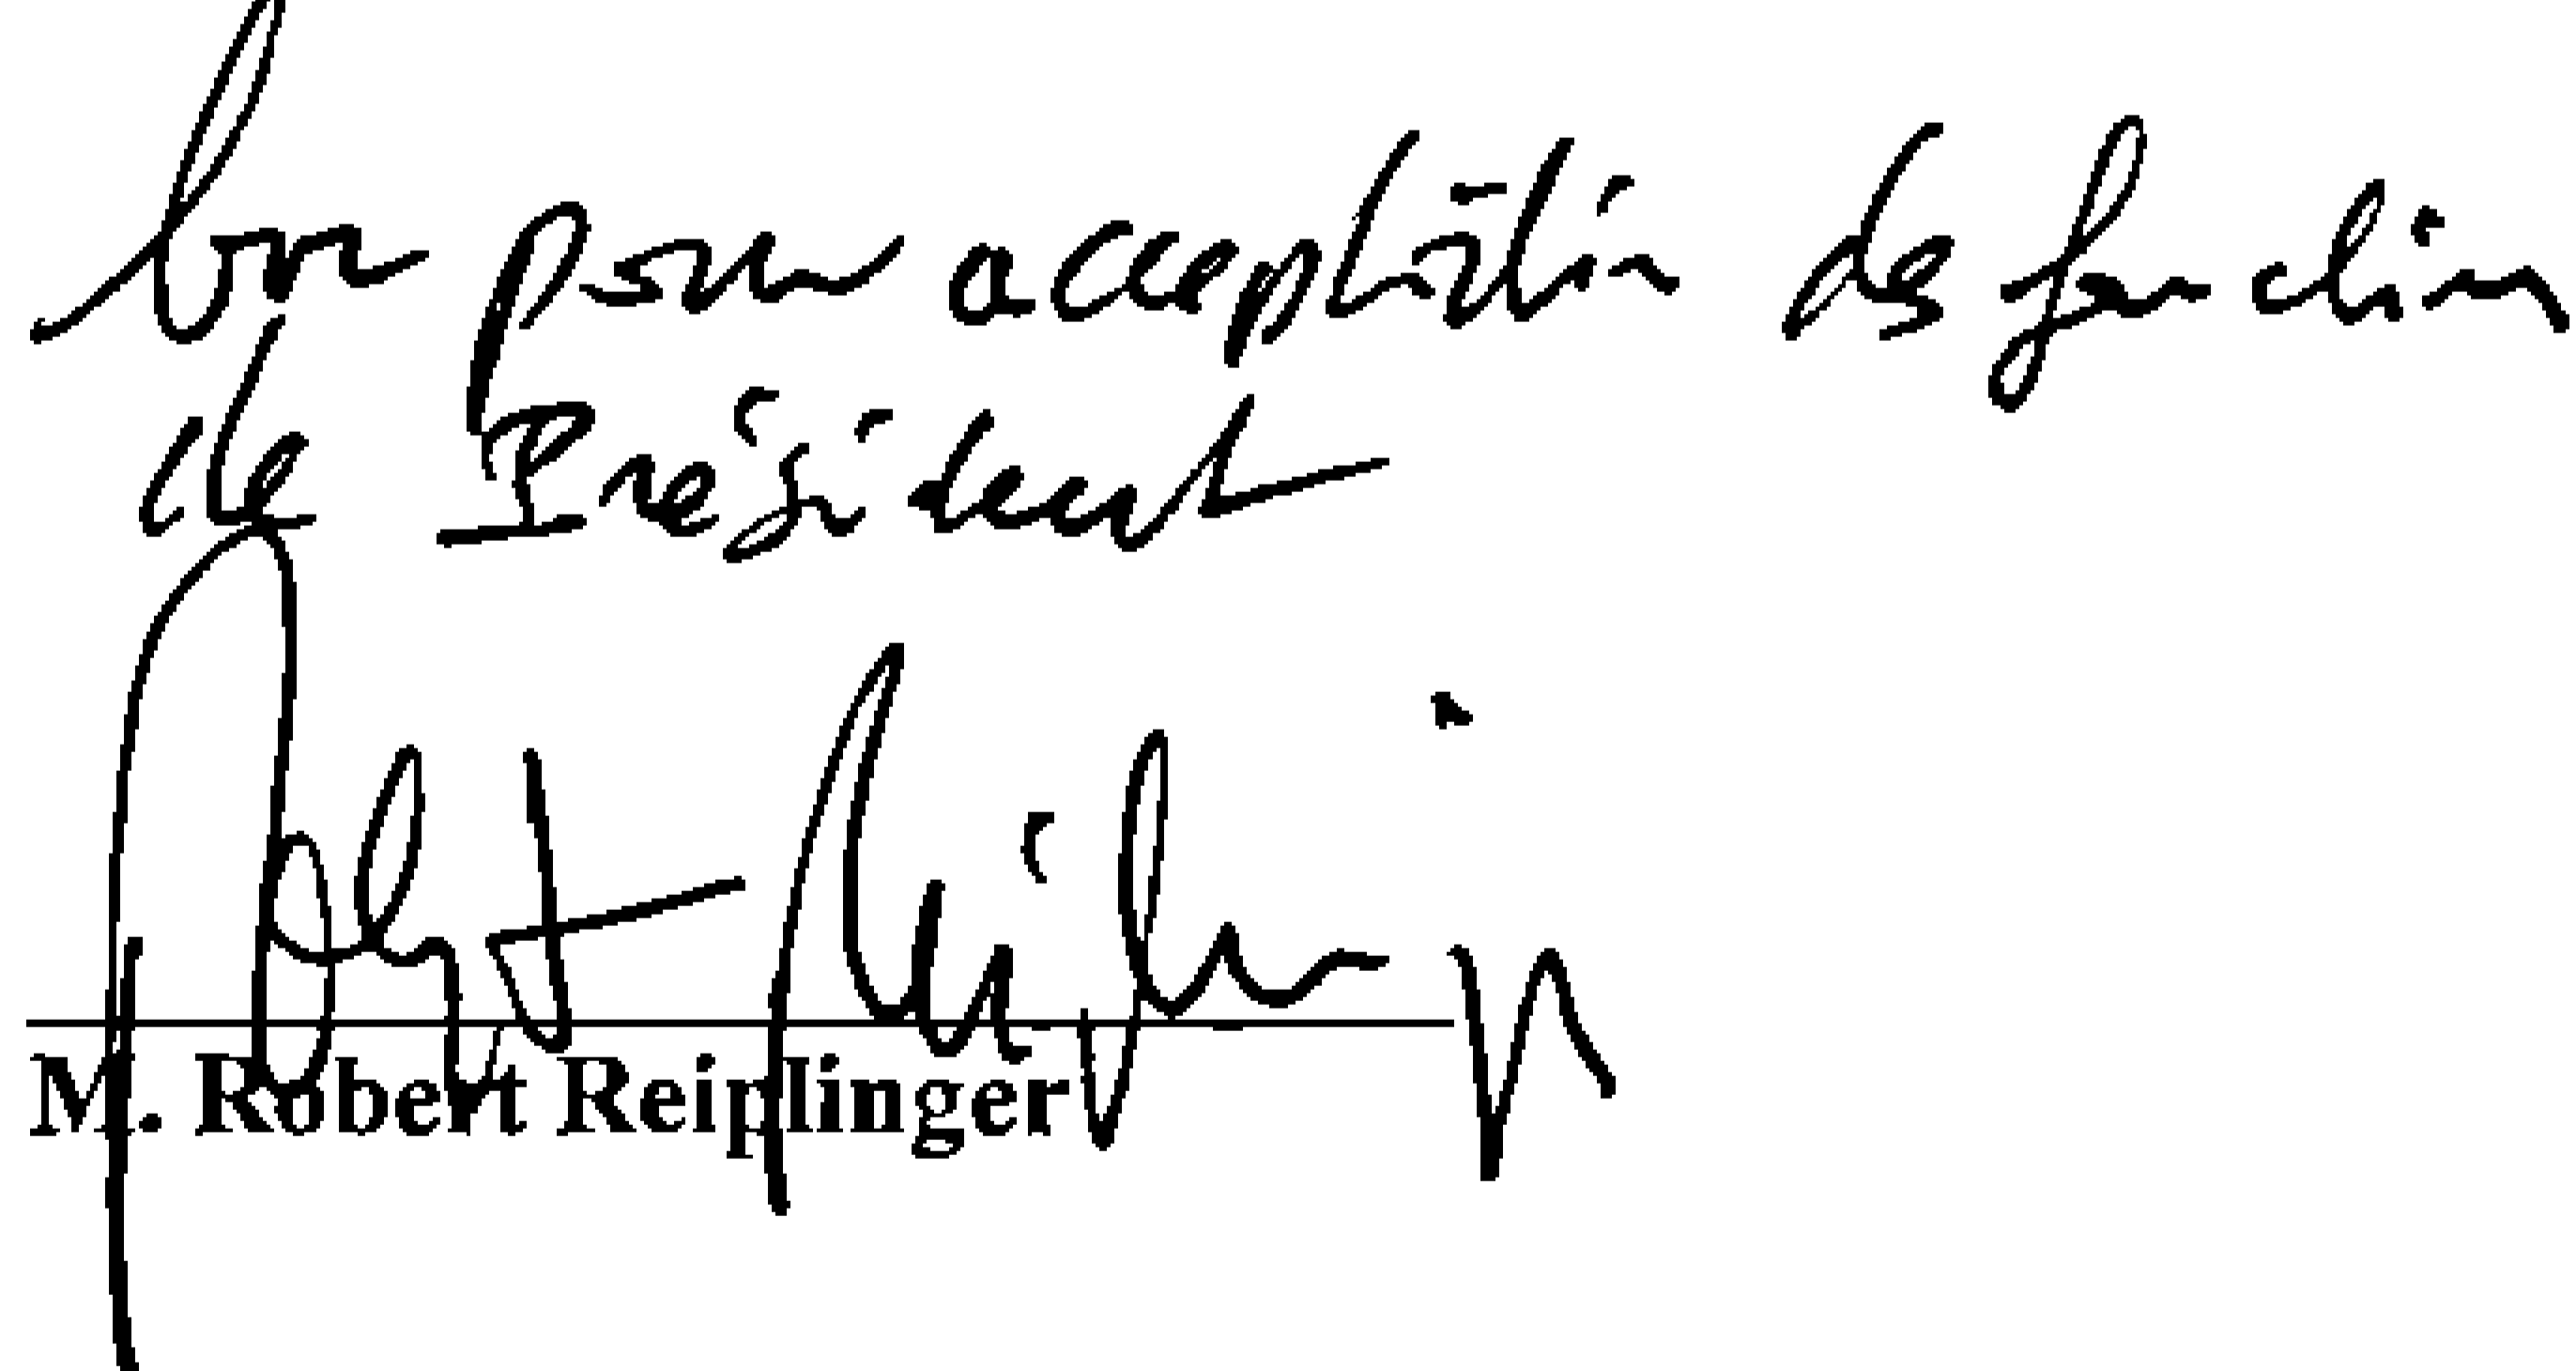 bon pour acceptation des fonctions
de Président
Robert Reiplinger
M. Robert Reiplinger